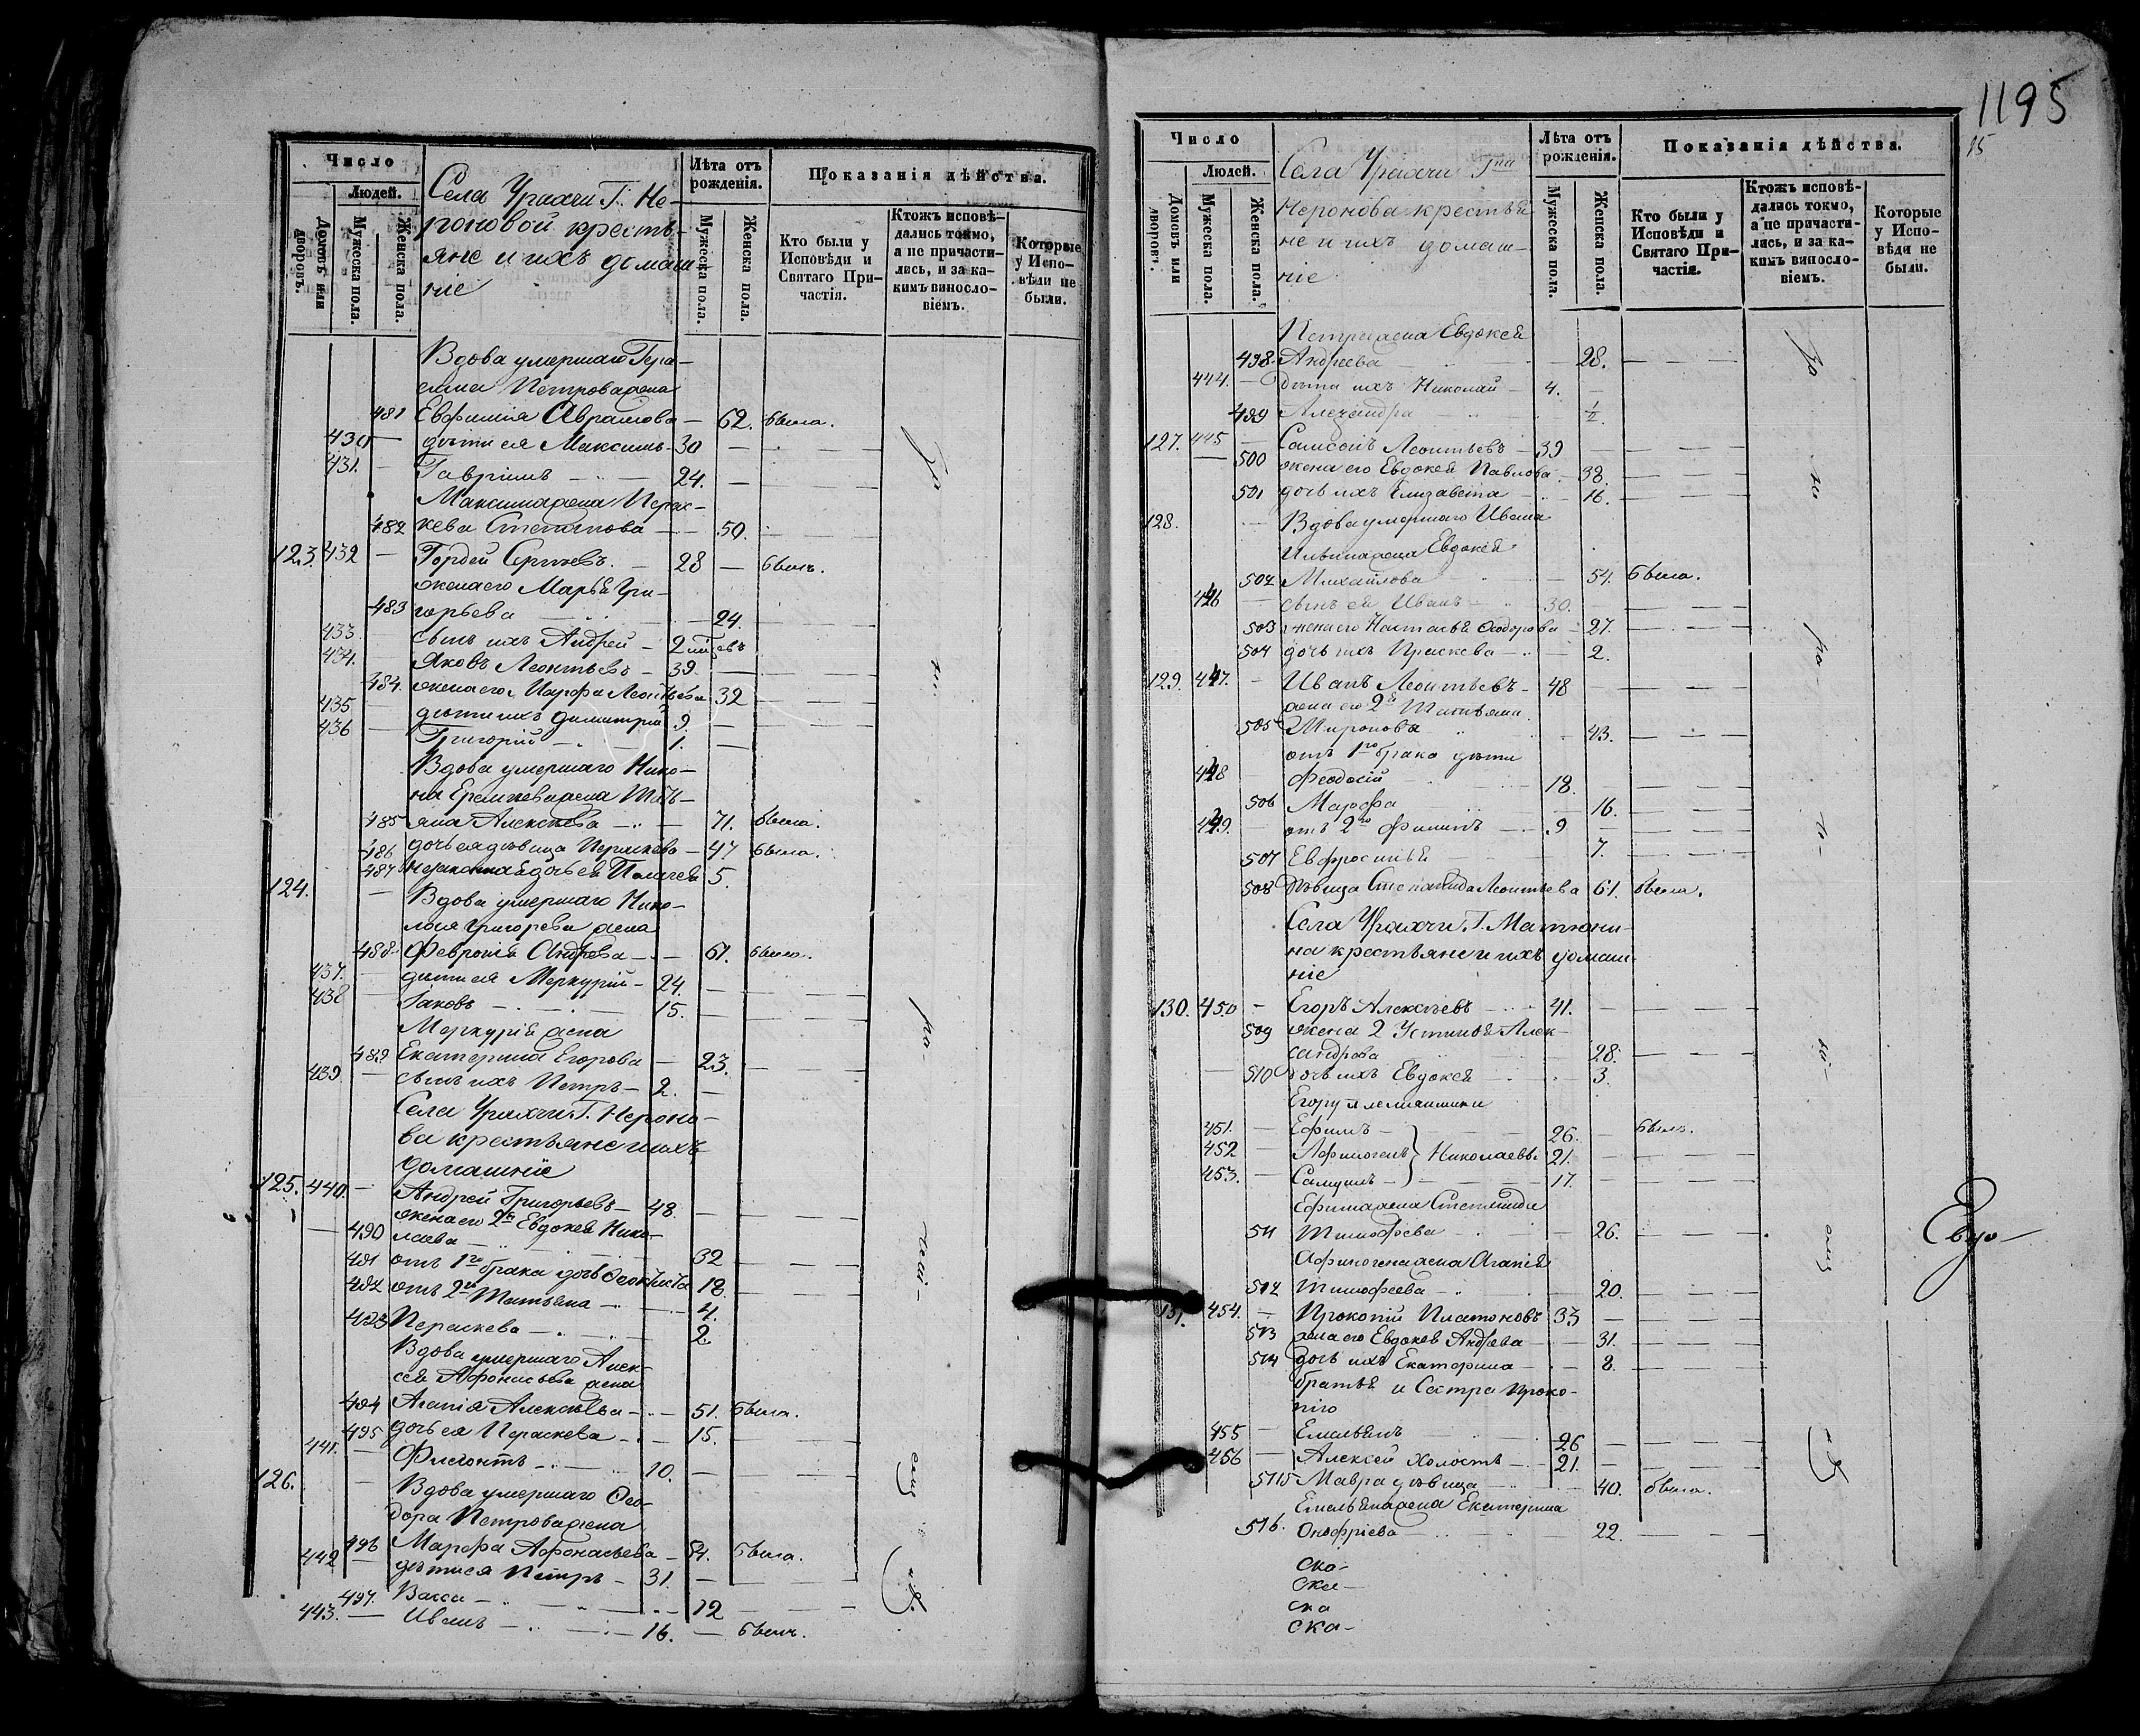 Число
Людей.
Домовъ или дворовъ.
Мужеска пола.
Женска пола.
Села Урахчи Г. Не-
роновой кресть-
яне и ихъ домаш-
ніе
Лѣта отъ рожденія.
Мужеска пола.
Женска пола.
Показанія дѣйства.
Кто были у Исповѣди и Святаго При-частія.
Ктожъ исповѣ-дались токмо, а не причасти-лись, и за ка-кимъ виносло-віемъ.
Которые у Испо-вѣди не были.
Вдова умершаго Гера-
сима Петрова жена
481 Евфимія Авраамова — 62. была.
430 — дѣти ея Максимъ — 30 —
431. — Гавріилъ — 24. —
Максима жена Перас-
482 кева Степанова — 50.
123. 432 — Гордей Сергѣевъ. — 28 — былъ.
жена его Марья Гри-
483 горьева — 24.
433. сынъ ихъ Андрей — 2
434. Яковъ Леонтьевъ — 39. —
484. жена его Марфа Леонтьева 32
435 дѣти ихъ Димитрій 9. —
436 — Григорій — 1. —
Вдова умершаго Нико-
на жена Тать-
485 яна Алексѣева — 71. была.
486 дочь ея дѣвица Параскева — 47 была.
487 дочь ея Пелагея 5.
124. — Вдова умершаго Нико-
лая Григорьева жена
488 Февронія Андреева — 61. была.
437. — дѣти ея Меркурій — 24. —
438 — Іаковъ — 15. —
Меркурія жена
489 Екатерина Егорова — 23.
439 — сынъ ихъ Петръ — 2. —
Села Урахчи Г. Неро-
нова крестьяне и ихъ
домашніе
125. 440. — Андрей Григорьевъ — 48. —
жена его 2я Евдокея Нико-
490 лаева — 32
491 отъ 1го брака дочь Феоктиста 18.
492 отъ 2го Татьяна — 4.
493 Пераскева — 2.
Вдова умершаго Алек-
сѣя Афонасьева жена
494 Агапія Алексѣева — 51. была.
495 дочь ея Пераскева — 15.
441. — — 10. —
126. — Вдова умершаго Фео-
дора Петрова жена
496 Марфа Афонасьева — 54. была.
442 — дѣти ея Петръ — 31. —
497. Васса — 12
443. — Иванъ — 16. — былъ.
1195
15
Число
Людей.
Домовъ или дворовъ.
Мужеска пола.
Женска пола.
Села Урахчи Гна
Неронова крестья-
не и ихъ домаш-
ніе
Лѣта отъ рожденія.
Мужеска пола.
Женска пола.
Показанія дѣйства.
Кто были у Исповѣди и Святаго При-частія.
Ктожъ исповѣ-дались токмо, а не причасти-лись, и за ка-кимъ виносло-віемъ.
Которые у Испо-вѣди не были.
Петра жена Евдокея
498. Андреева — 28.
444. — дѣти ихъ Николай — 4. —
499 Александра — ½.
127. 445 — Самсонъ Леонтьевъ — 39 —
500 жена его Евдокея Павлова. 38.
501 дочь ихъ Елизавета — 16.
128. — Вдова умершаго Ивана
Ильина жена Евдокея
502 Михайлова — 54. была.
446 — сынъ ея Иванъ — 30. —
503 жена его Настасья Феодорова — 27.
504 дочь ихъ Праскева — 2.
129. 447. — Иванъ Леонтьевъ — 48 —
жена его 2я Татьяна
505 Миронова — 43.
отъ 1го брака дѣти
448 — Феодосій — 18.
506 Марфа — 16.
449. — отъ 2го Филипъ — 9 —
507 Евфросинья — 7.
508 дѣвица Степанида Леонтьева 61. была.
Села Урахчи. Г. Матюни-
на крестьяне и ихъ домаш-
ніе
130. 450 — Егоръ Алексѣевъ — 41. —
509 жена 2 Устинья Алек-
сандрова — 28.
510 дочь ихъ Евдокея — 3.
Егору племянники
451. — Ефимъ — 26. — былъ.
452 — Афиногенъ } Николаевы 21. —
453. — Самуилъ — 17. —
Ефима жена Степанида
511 Тимофеева — 26.
Афиногена жена Агапія
512 Тимофеева — 20.
131. 454. — Прокопій Платоновъ 33 —
513 жена его Евдокея Андреева — 31.
514 дочь ихъ Екатерина — 8.
братья и Сестра Проко-
пію
455 — Емельянъ — 26 —
456 — Алексей холостъ — 21. —
515 Мавра дѣвица — 40. была.
Емельяна жена Екатерина
516. Онофріева — 22.
Ско-
ска-
ска
ска-
Евдо-